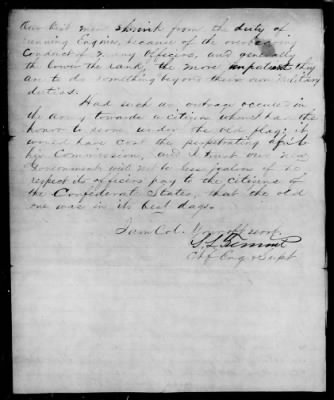 Our best men shrink from the duty of
running Engines, because of the overbearing
Conduct of many Officers, and generally
the lower the rank, the more impatient they
are to do something beyond their own Military
duties.
Had such an outrage occured in
the Army towards a citizen when I had the
honor to serve under the old flag, it
would have cost the perpetrating officer
his Commission, and I trust our new
Government will not be less jealous of the
respect its officers pay to the citizens of
the Confederate States, than the old
one was in its best days.
I am Col. Your obt serv
S. L. Fremont
Chf Eng & Supt